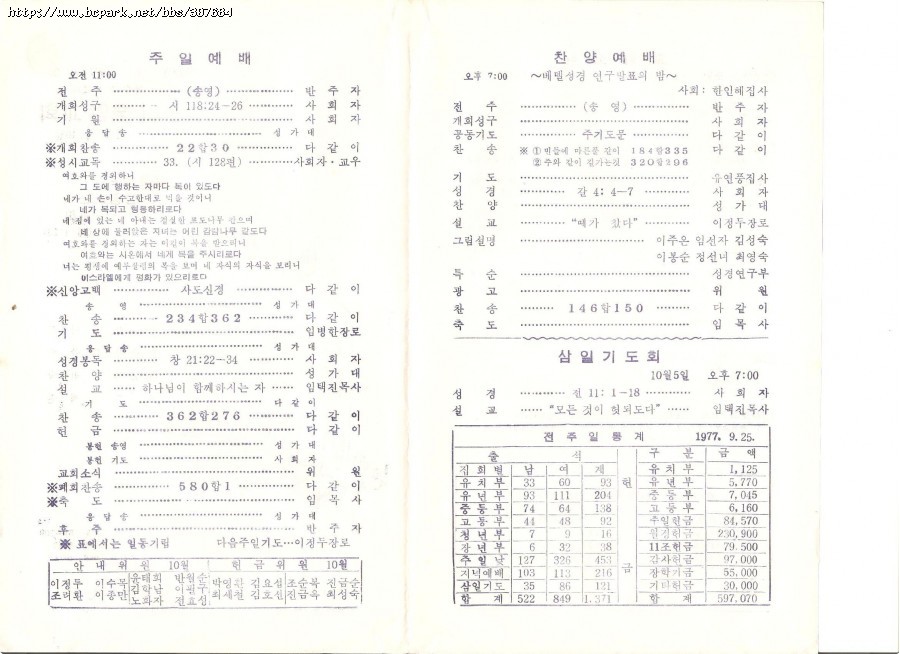 https://www.bcpark.net/bbs/387664
주 일 예 배
오전 11:00
전 주 (송영) 반 주 자
개회성구 시 118:24-26 사 회 자
기 원 사 회 자
응 답 송 성 가 대
※개회찬송 22합30 다 같 이
※성시교독 33. (시 128편) 사회자·교우
여호와를 경외하며
그 도에 행하는 자마다 복이 있도다
네가 네 손이 수고한대로 먹을 것이니
네가 복되고 형통하리로다
네 집에 있는 네 아내는 결실한 포도나무 같으며
네 상에 둘러앉은 자녀는 어린 감람나무 같도다
여호와를 경외하는 자는 이같이 복을 받으리니
여호와는 시온에서 네게 복을 주시리로다
너는 평생에 예루살렘의 복을 보며 네 자식의 자식을 보리니
이스라엘에게 평화가 있으리로다
※신앙고백 사도신경 다 같 이
송 영 성 가 대
찬 송 234합362 다 같 이
기 도 임병한장로
응 답 송 성 가 대
성경봉독 창 21:22-34 사 회 자
찬 양 성 가 대
설 교 하나님이 함께하시는 자 임택진목사
기 도 다 같 이
찬 송 362합276 다 같 이
헌 금 다 같 이
봉헌 송영 성 가 대
봉헌 기도 사 회 자
교회소식 위 원
※폐회찬송 580합1 다 같 이
※축 도 임 목 사
응 답 송 성 가 대
후 주 반 주 자
※ 표에서는 일동기립 다음주일기도…이정두장로
안 내 위 원 10월 헌 금 위 원 10월
이정두 이수목 윤태희 반원순 박영찬 김요섭 조순복 진금순
조려환 이종만 김학남 이필구 최세철 김호선 진금옥 최성숙
노화자 전효성
찬 양 예 배
오후 7:00 ~베델성경 연구발표의 밤~
사회: 한인혜집사
전 주 (송 영) 반 주 자
개회성구 사 회 자
공동기도 주기도문 다 같 이
찬 송 ※ ① 빈들에 마른풀 같이 184합335 다 같 이
② 주와 같이 길가는것 320합296
기 도 유연풍집사
성 경 갈 4:4-7 사 회 자
찬 양 성 가 대
설 교 “때가 찼다” 이정두장로
그림설명 이주은 임선자 김성숙
이봉순 정선녀 최영숙
특 순 성경연구부
광 고 위 원
찬 송 146합150 다 같 이
축 도 임 목 사
삼 일 기 도 회
10월5일 오후 7:00
성 경 전 11:1-18 사 회 자
설 교 “모든 것이 헛되도다” 임택진목사
전 주 일 통 계 1977. 9. 25.
출 석 헌 금 구 분 금 액
집회별 남 여 계 유치부 1,125
유치부 33 60 93 유년부 5,770
유년부 93 111 204 중등부 7,045
중등부 74 64 138 고등부 6,160
고등부 44 48 92 주일헌금 84,570
청년부 7 9 16 월정헌금 230,900
장년부 6 32 38 11조헌금 79,500
주일낮 127 326 453 감사헌금 97,000
저녁예배 103 113 216 장학기금 55,000
삼일기도 35 86 121 기타헌금 30,000
합 계 522 849 1,371 합 계 597,070